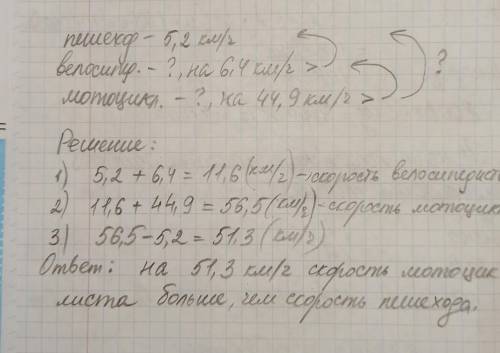 пешеход – 5,2 км/ч
велосипед. – ?, на 6,4 км/ч >
?
мотоцикл. – ?, на 44,9 км/ч >
Решение:
1) 5,2 + 6,4 = 11,6 (км/ч) – скорость велосипедист
2) 11,6 + 44,9 = 56,5 (км/ч) – скорость мотоцик
3) 56,5 – 5,2 = 51,3 (км/ч)
Ответ: на 51,3 км/ч скорость мотоцик
листа больше, чем скорость пешехода.